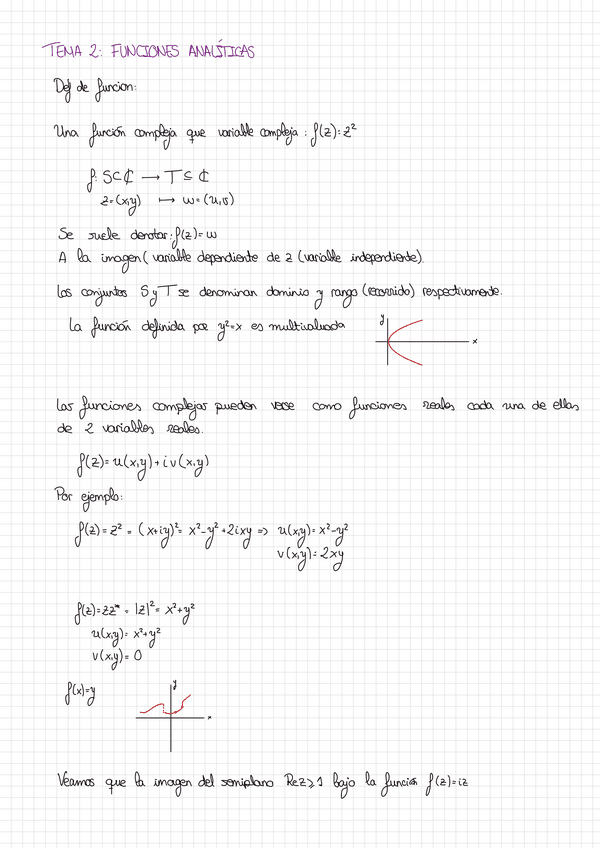 TEMA 2: FUNCIONES ANALÍTICAS
Def de funcion:
Una función compleja que variable compleja : f(z)=z²
f: S⊂ℂ → T⊆ℂ
z=(x,y) ↦ w=(u,v)
Se suele denotar: f(z)=w
A la imagen (variable dependiente de z (variable independiente).
Los conjuntos S y T se denominan dominio y rango (recorrido) respectivamente.
La función definida por y²=x es multivaluada
y
x
Las funciones complejas pueden verse como funciones reales cada una de ellas
de 2 variables reales.
f(z)=u(x,y)+iv(x,y)
Por ejemplo:
f(z)=z²=(x+iy)²=x²-y²+2ixy ⇒ u(x,y)=x²-y²
v(x,y)=2xy
f(z)=zz*=|z|²=x²+y²
u(x,y)=x²+y²
v(x,y)=0
f(x)=y
y
x
Veamos que la imagen del semiplano Rez⩾1 bajo la función f(z)=iz